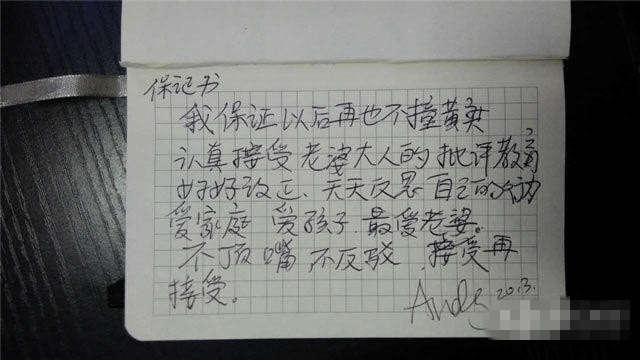 保证书
我保证以后再也不撞黄奕
认真接受老婆大人的批评教育
好好改正、天天反思自己的行动
爱家庭 爱孩子.最爱老婆。
不顶嘴 不反驳 接受再
接受。
Andy 2013.